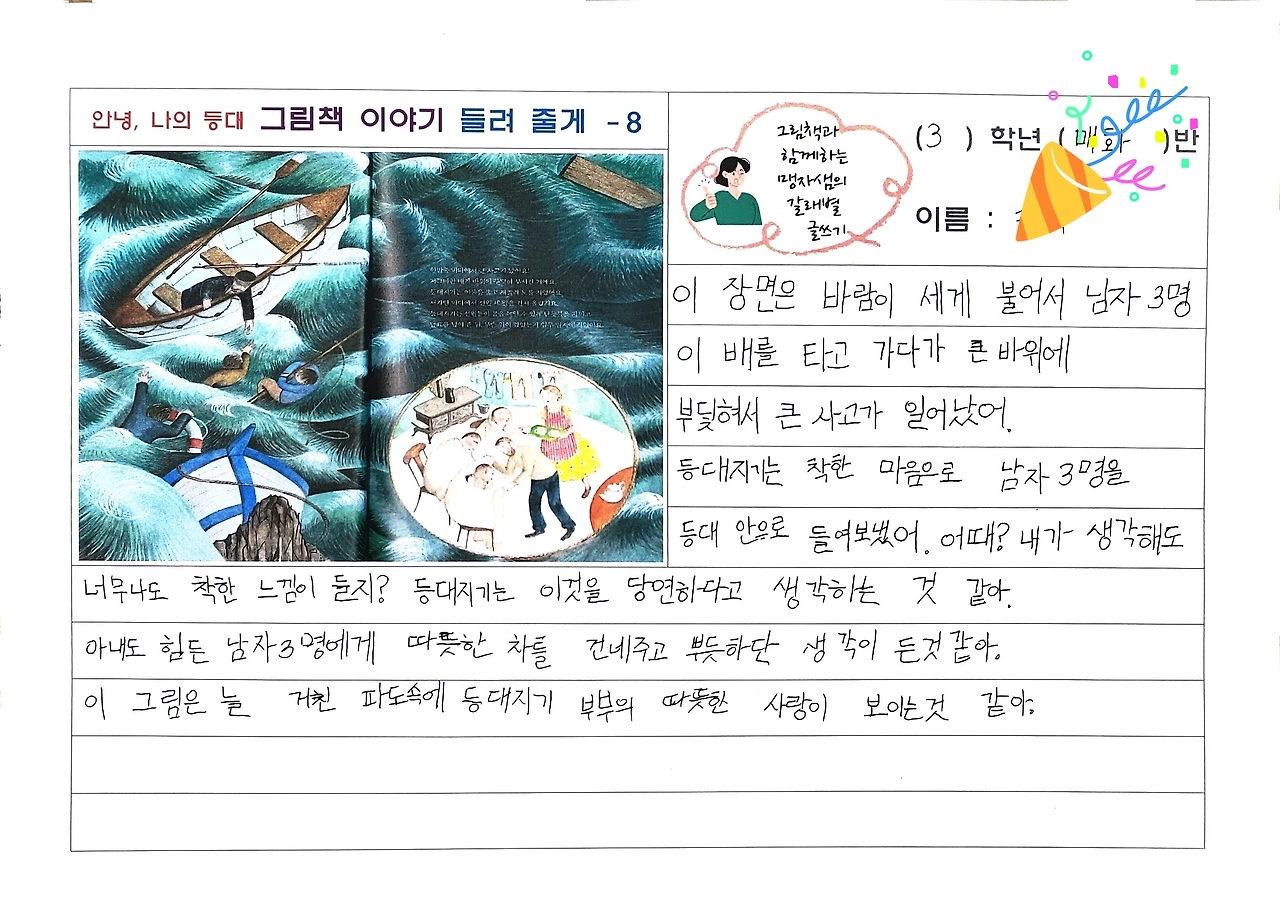 안녕, 나의 등대 그림책 이야기 들려 줄게 -8
그림책과
함께하는
맹자샘의
갈래별
글쓰기
(3 ) 학년 (매화 )반
이름 :
이 장면은 바람이 세게 불어서 남자 3명
이 배를 타고 가다가 큰 바위에
부딪혀서 큰 사고가 일어났어.
등대지기는 착한 마음으로 남자 3명을
등대 안으로 들여보냈어. 어때? 내가 생각해도
너무나도 착한 느낌이 듣지? 등대지기는 이것을 당연하다고 생각하는 것 같아.
아내도 힘든 남자3명에게 따뜻한 차를 건네주고 뿌듯하단 생각이 든것같아.
이 그림은 늘 거친 파도속에 등대지기 부부의 따뜻한 사랑이 보이는것 같아.